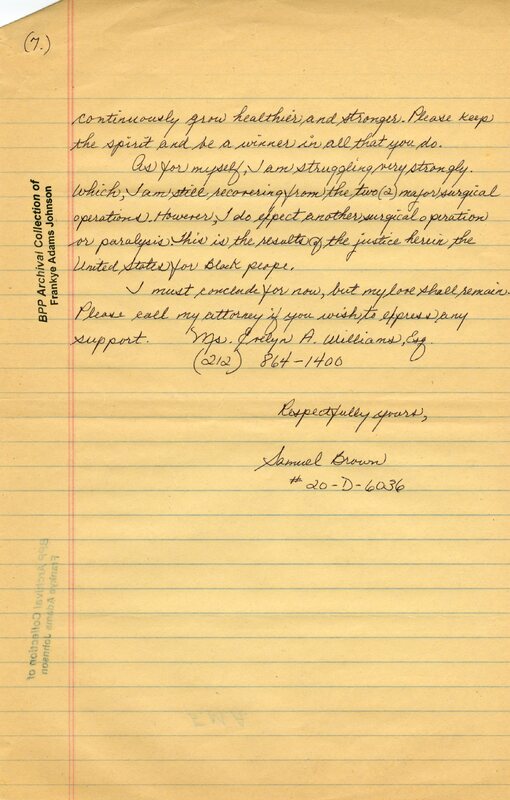 (7.)
continuously grow healthier, and stronger. Please keep
the spirit and be a winner in all that you do.
As for myself, I am struggling very strongly.
Which, I am still recovering from the two (2) major surgical
operations. However, I do expect another surgical operation
or paralysis. This is the results of the justice herein the
United States for Black peope.
I must conclude for now, but my love shall remain.
Please call my attorney if you wish to express any
support. Ms. Evelyn A. Williams, Esq
(212) 864-1400
Respectfully yours,
Samuel Brown
# 20-D-6036
BPP Archival Collection of
Frankye Adams Johnson
BPP Archival Collection of
Frankye Adams Johnson